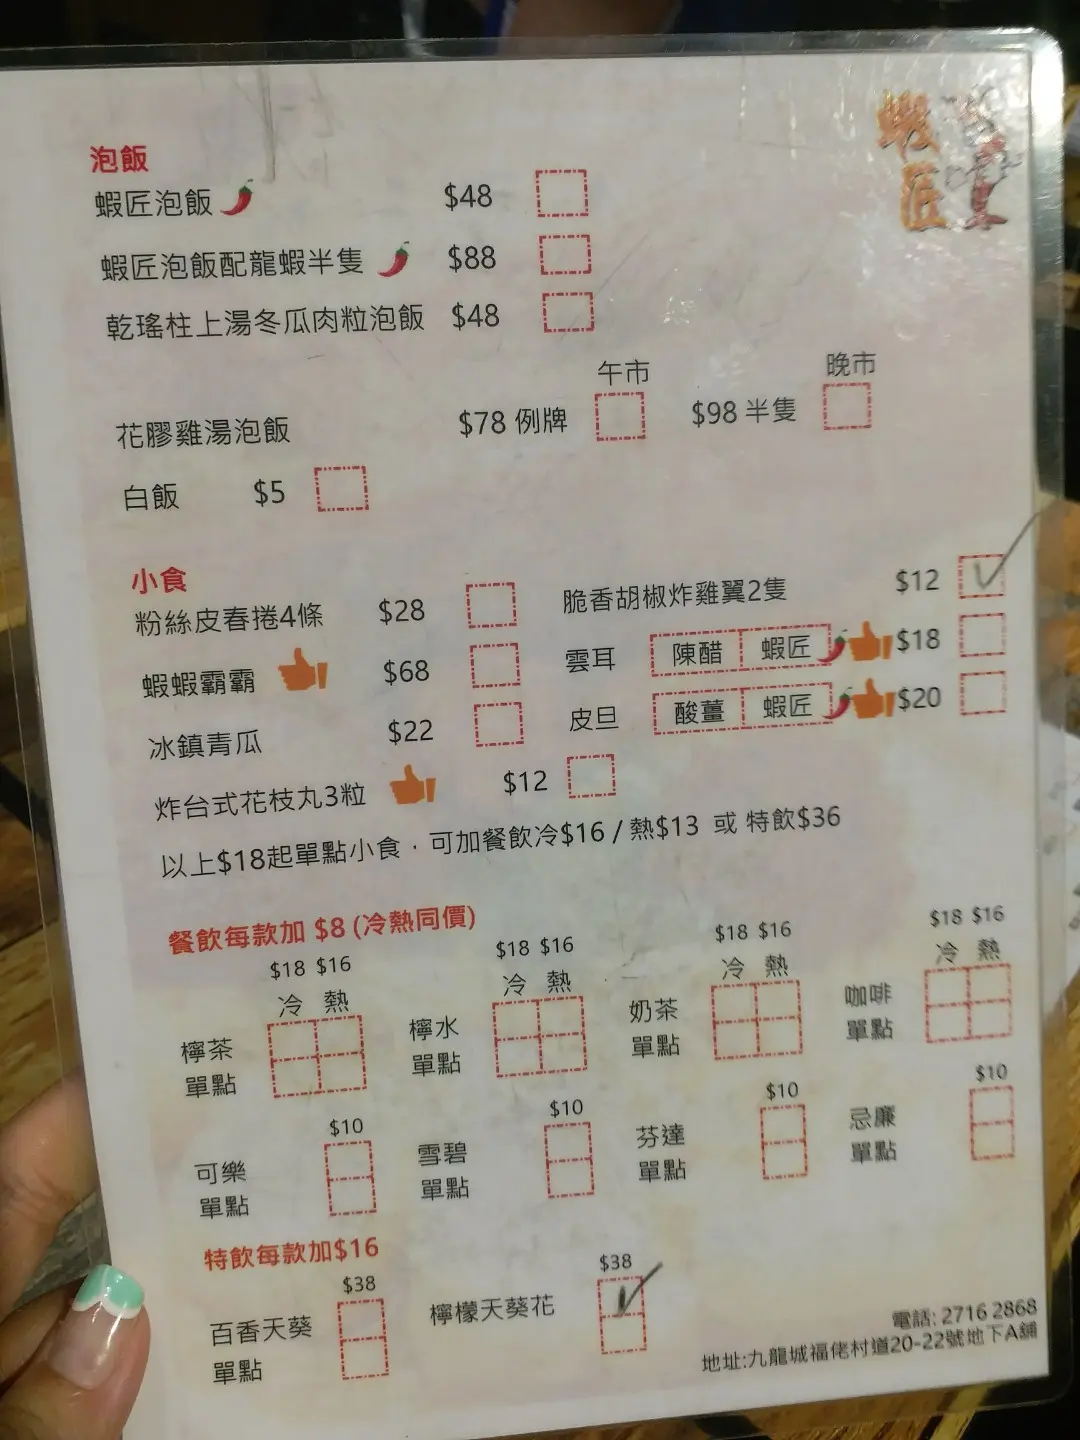 蝦匠
泡飯
蝦匠泡飯 $48
蝦匠泡飯配龍蝦半隻 $88
乾瑤柱上湯冬瓜肉粒泡飯 $48
午市 晚市
花膠雞湯泡飯 $78 例牌 $98 半隻
白飯 $5
小食
粉絲皮春捲4條 $28 脆香胡椒炸雞翼2隻 $12
蝦蝦霸霸 $68 雲耳 陳醋 蝦匠 $18
冰鎮青瓜 $22 皮旦 酸薑 蝦匠 $20
炸台式花枝丸3粒 $12
以上$18起單點小食，可加餐飲冷$16 / 熱$13 或 特飲$36
餐飲每款加 $8 (冷熱同價)
$18 $16 $18 $16 $18 $16 $18 $16
冷 熱 冷 熱 冷 熱 冷 熱
檸茶 檸水 奶茶 咖啡
單點 單點 單點 單點
$10 $10 $10 $10
可樂 雪碧 芬達 忌廉
單點 單點 單點 單點
特飲每款加$16
$38 $38
百香天葵 檸檬天葵花
單點
電話: 2716 2868
地址:九龍城福佬村道20-22號地下A鋪